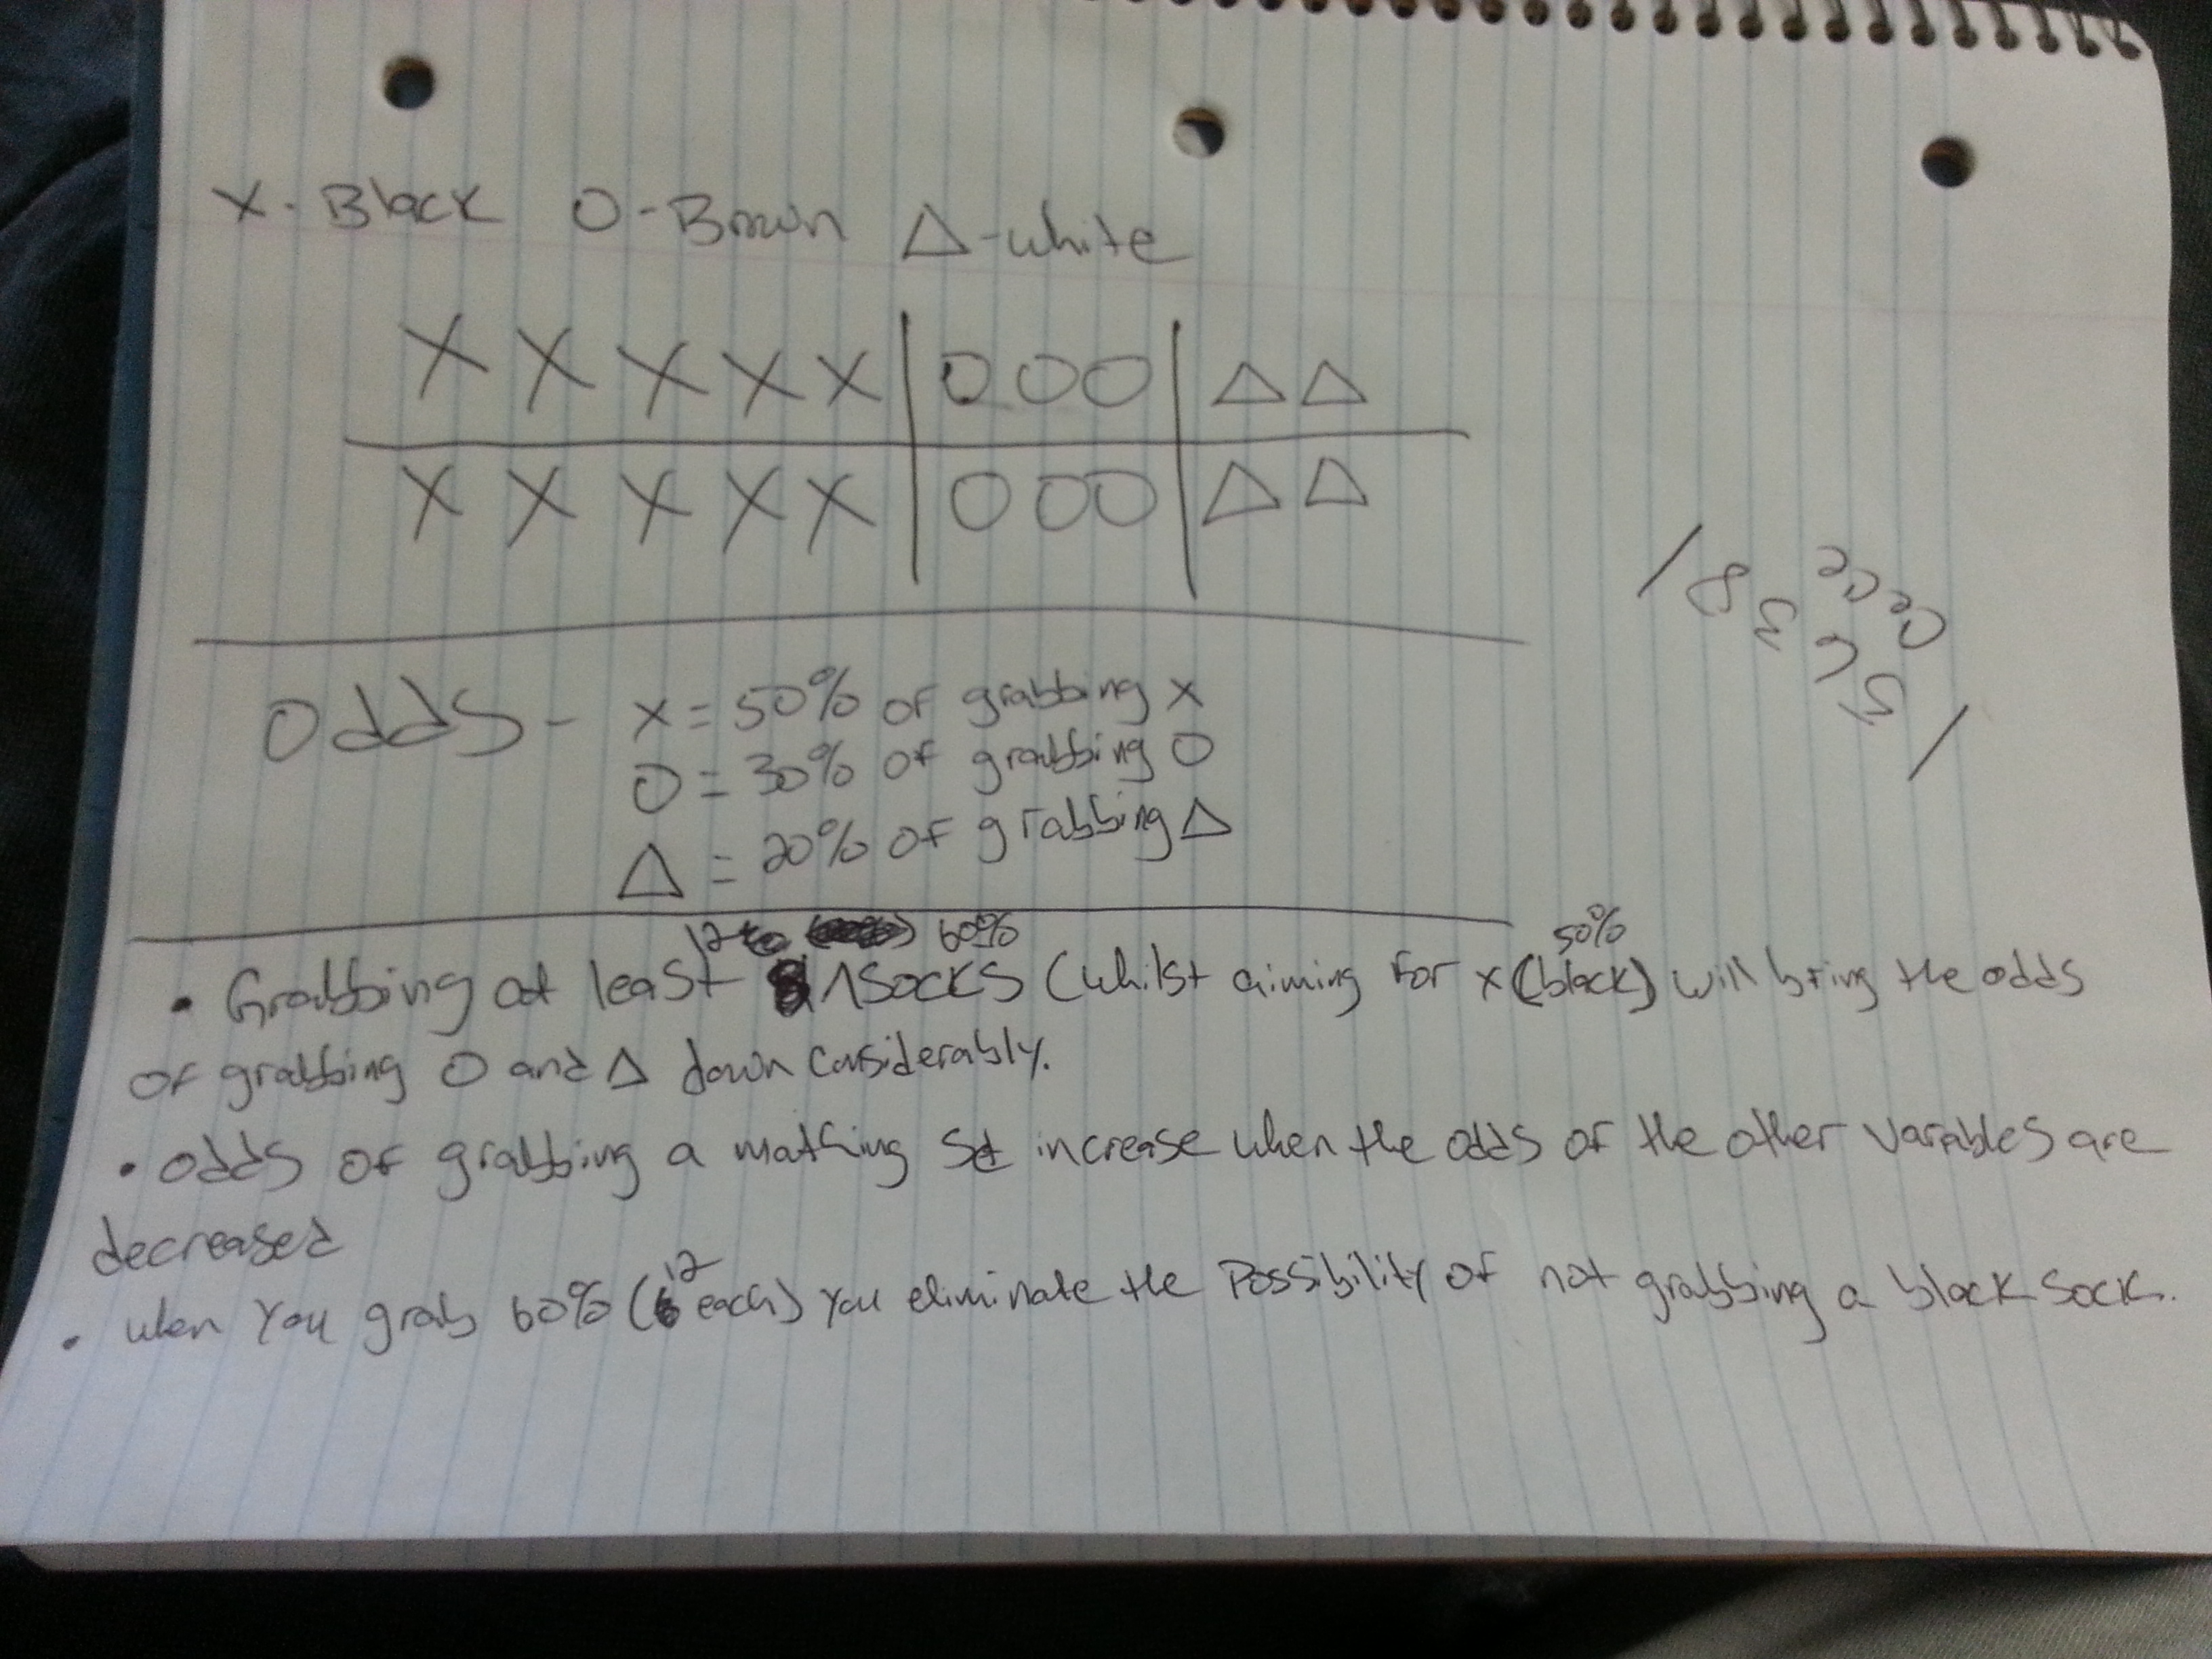 X - Black O - Brown △ - white
X X X X X | O O O | △ △
X X X X X | O O O | △ △
Odds - x = 50% of grabbing x
O = 30% of grabbing O
△ = 20% of grabbing △
12 60% 50%
• Grabbing at least ^ socks (whilst aiming for x (black) will bring the odds
of grabbing O and △ down considerably.
• odds of grabbing a mathing set increase when the odds of the other variables are
decreased
12
• when you grab 60% (6 each) you eliminate the possibility of not grabbing a black sock.
Cece